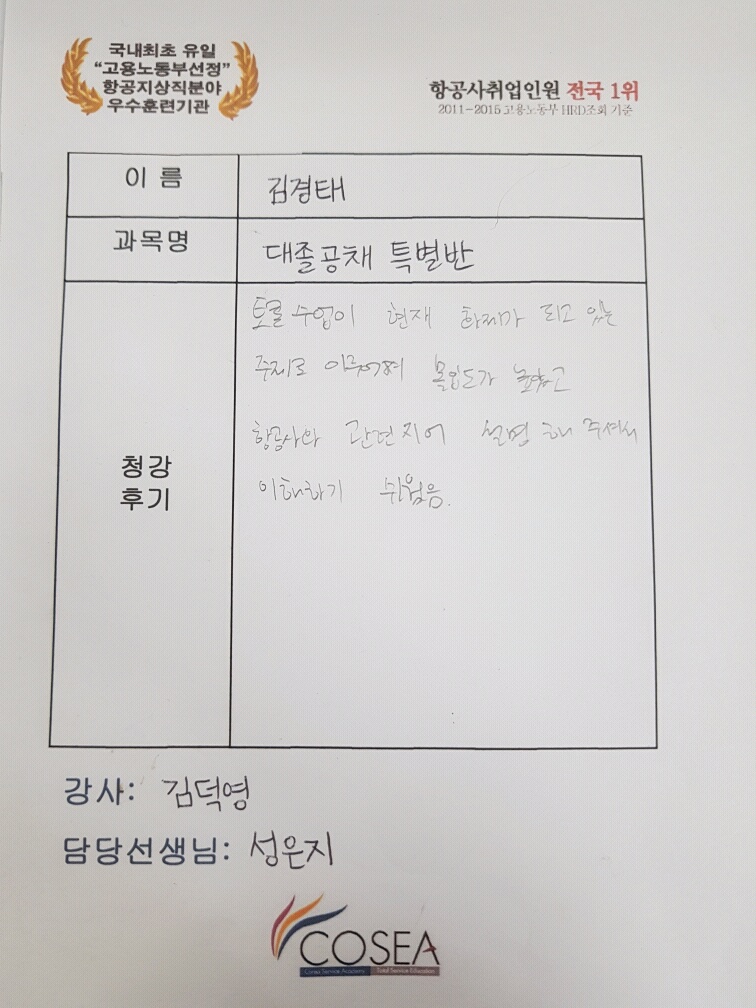 국내최초 유일
"고용노동부선정"
항공지상직분야
우수훈련기관
항공사취업인원 전국 1위
2011-2015 고용노동부 HRD조회 기준
이 름
김경태
과목명
대졸공채 특별반
청강
후기
토론 수업이 현재 화제가 되고 있는
주제로 이루어져 몰입도가 높았고
항공사와 관련지어 설명해 주셔서
이해하기 쉬웠음.
강사: 김덕영
담당선생님: 성은지
COSEA
Corea Service Academy Total Service Education